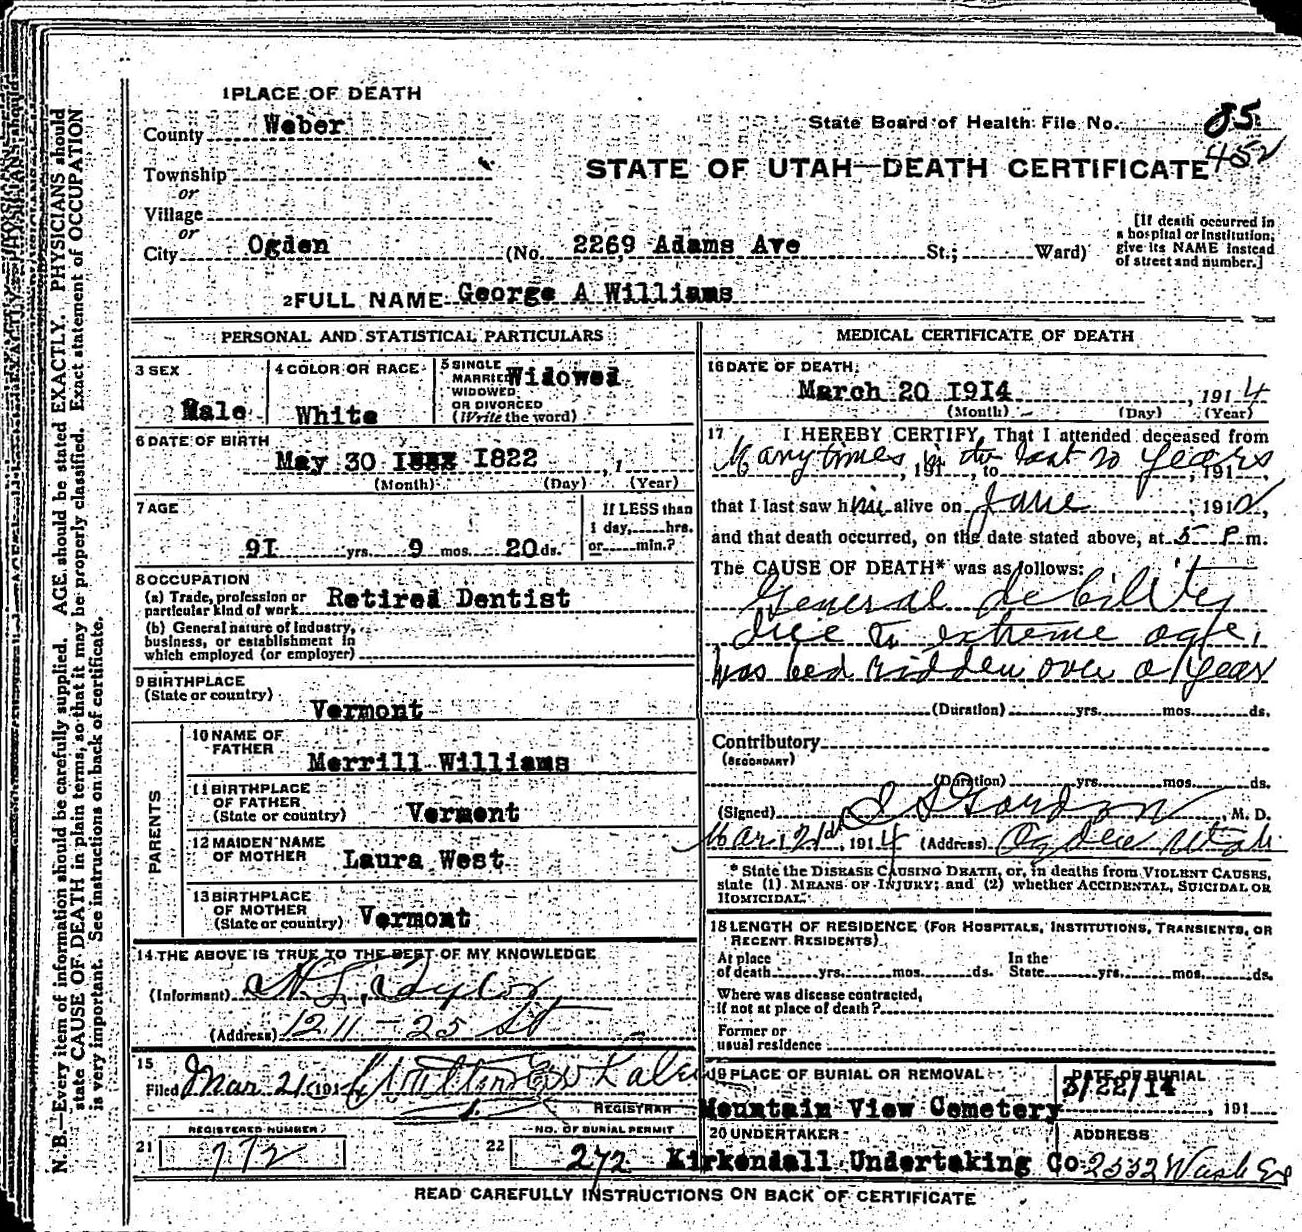 1 PLACE OF DEATH
County Weber
State Board of Health File No. 85
452
STATE OF UTAH—DEATH CERTIFICATE
Township
or
Village
or
City Ogden (No. 2269 Adams Ave St.; Ward)
[If death occurred in
a hospital or institution,
give its NAME instead
of street and number.]
2 FULL NAME George A Williams
PERSONAL AND STATISTICAL PARTICULARS
3 SEX
Male
4 COLOR OR RACE
White
5 SINGLE
MARRIED
WIDOWED
OR DIVORCED
(Write the word)
Widowed
6 DATE OF BIRTH
May 30 1822 , 1
(Month) (Day) (Year)
7 AGE
91 yrs. 9 mos. 20 ds.
If LESS than
1 day, hrs.
or min.?
8 OCCUPATION
(a) Trade, profession or
particular kind of work Retired Dentist
(b) General nature of industry,
business, or establishment in
which employed (or employer)
9 BIRTHPLACE
(State or country)
Vermont
PARENTS
10 NAME OF
FATHER
Merrill Williams
11 BIRTHPLACE
OF FATHER
(State or country) Vermont
12 MAIDEN NAME
OF MOTHER Laura West
13 BIRTHPLACE
OF MOTHER
(State or country) Vermont
14 THE ABOVE IS TRUE TO THE BEST OF MY KNOWLEDGE
(Informant)
(Address) 1211 - 25 St
15
Filed Mar 21, 191
REGISTRAR
21 REGISTERED NUMBER
772
22 NO. OF BURIAL PERMIT
272
MEDICAL CERTIFICATE OF DEATH
16 DATE OF DEATH
March 20 1914 , 1914
(Month) (Day) (Year)
17 I HEREBY CERTIFY, That I attended deceased from
Many times , 191 in the last 20 years , 191 ,
that I last saw him alive on June , 1912,
and that death occurred, on the date stated above, at 5 P m.
The CAUSE OF DEATH* was as follows:
General debility
due to extreme age,
was bed ridden over a year
(Duration) yrs. mos. ds.
Contributory
(SECONDARY)
(Duration) yrs. mos. ds.
(Signed) Gordon , M. D.
Mar, 21st, 1914 (Address) Ogden Utah
* State the DISEASE CAUSING DEATH, or, in deaths from VIOLENT CAUSES,
state (1) MEANS OF INJURY; and (2) whether ACCIDENTAL, SUICIDAL OR
HOMICIDAL.
18 LENGTH OF RESIDENCE (FOR HOSPITALS, INSTITUTIONS, TRANSIENTS, OR
RECENT RESIDENTS)
At place
of death yrs. mos. ds. In the
State yrs. mos. ds.
Where was disease contracted,
if not at place of death?
Former or
usual residence
19 PLACE OF BURIAL OR REMOVAL
Mountain View Cemetery
DATE OF BURIAL
3/22/14 , 191
20 UNDERTAKER
Kirkendall Undertaking Co
ADDRESS
2552 Wash Ave
READ CAREFULLY INSTRUCTIONS ON BACK OF CERTIFICATE
N. B.—Every item of information should be carefully supplied. AGE should be stated EXACTLY. PHYSICIANS should
state CAUSE OF DEATH in plain terms, so that it may be properly classified. Exact statement of OCCUPATION
is very important. See instructions on back of certificate.